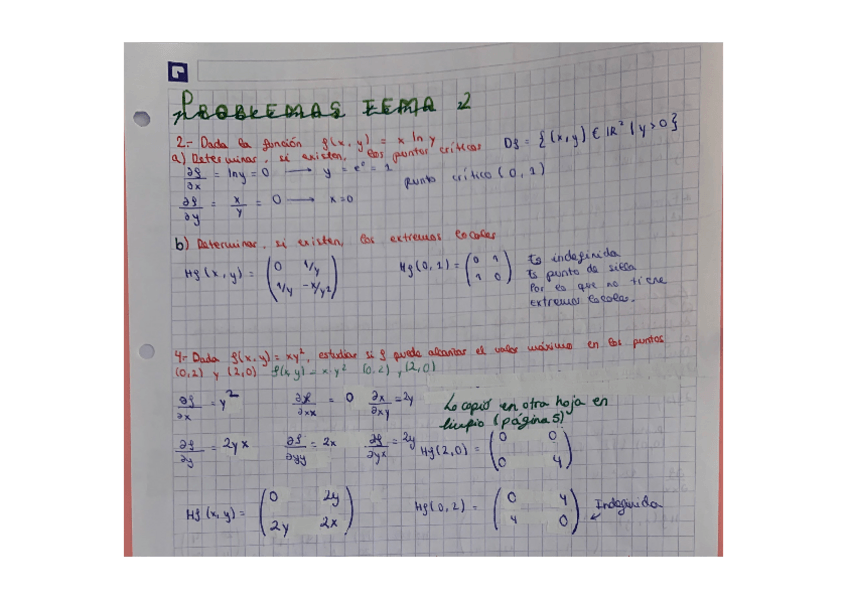 PROBLEMAS TEMA 2
2.- Dada la función f(x, y) = x ln y
Df = {(x,y) € IR² | y > 0}
a) Determinar, si existen, los puntos críticos
∂f/∂x = ln y = 0 → y = e⁰ = 1
punto crítico (0, 1)
∂f/∂y = x/y = 0 → x=0
b) Determinar, si existen, los extremos locales
Hf (x, y) = (0 1/y
1/y -x/y²)
Hf (0, 1) = (0 1
1 0)
Es indefinida
Es punto de silla
Por lo que no tiene
extremos locales.
4.- Dada f(x, y) = xy², estudiar si f puede alcanzar el valor máximo en los puntos
(0,2) y (2,0) f(x, y) = x·y² (0,2), (2,0)
∂f/∂x = y²
∂f/∂xx = 0
∂x/∂xy = 2y
Lo copio en otra hoja en
limpio (página 5)
∂f/∂y = 2yx
∂f/∂yy = 2x
∂f/∂yx = 2y
Hf (2,0) = (0 0
0 4)
Hf (x, y) = (0 2y
2y 2x)
Hf (0, 2) = (0 4
4 0)
Indefinida